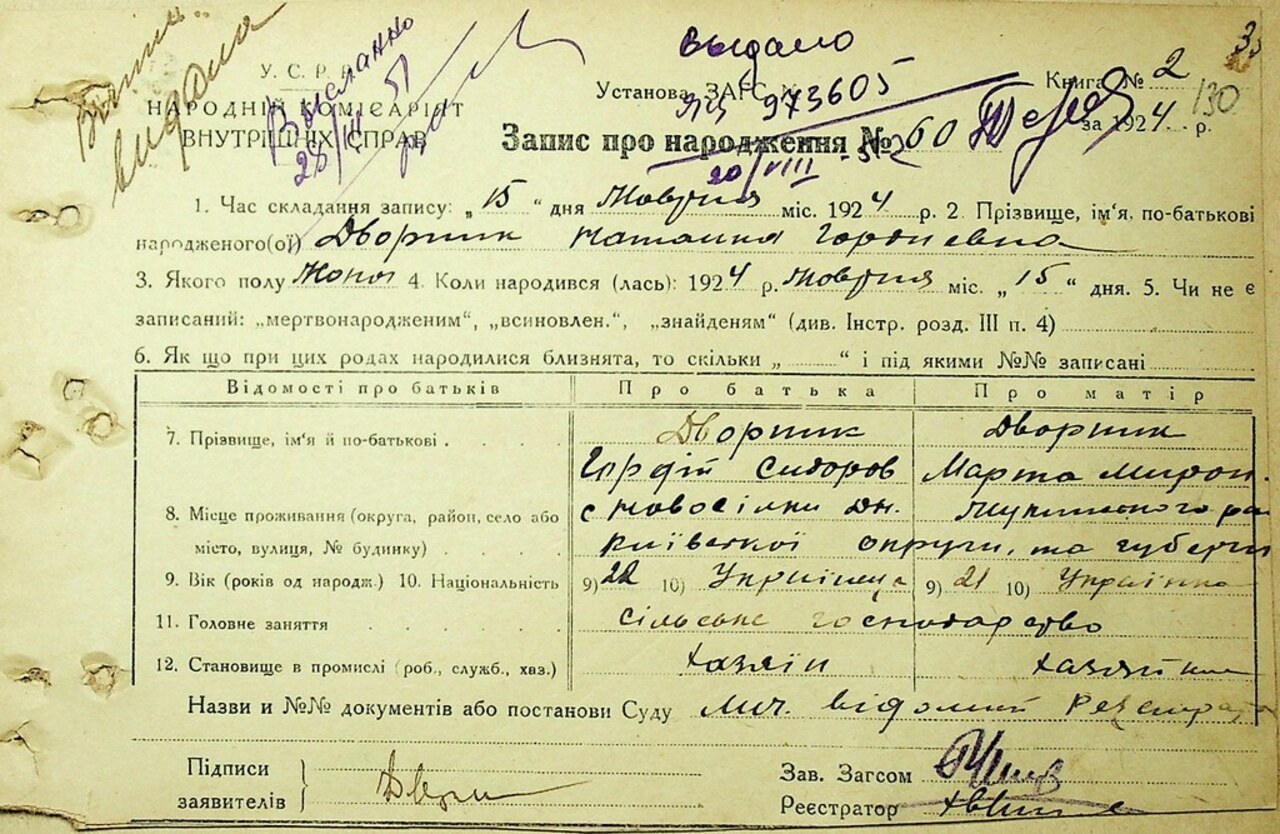 видана
Выслано
28/III 51
Выдано
ЯЩ 973605
20/VIII - 52
35
130
У. С. Р. Р.
НАРОДНІЙ КОМІСАРІЯТ
ВНУТРІШНІХ СПРАВ
Установа ЗАГС
Книга № 2
за 1924 р.
Запис про народження № 60
1. Час складання запису: „ 15 “ дня Жовтня міс. 1924 р. 2. Прізвище, ім'я, по-батькові
народженого(ої) Дворник Наталка Гордиевна
3. Якого полу Жоноч 4. Коли народився (лась): 1924 р. Жовтня міс. „ 15 “ дня. 5. Чи не є
записаний: „мертвонародженим“, „всиновлен.“, „знайденям“ (див. Інстр. розд. III п. 4)
6. Як що при цих родах народилися близнята, то скільки „ “ і під якими №№ записані
Відомості про батьків Про батька Про матір
7. Прізвище, ім'я й по-батькові Дворник Дворник
Гордій Сидоров Марта Мирон.
8. Місце проживання (округа, район, село або с Новосілки Дн.
місто, вулиця, № будинку) Київської округи, та губерні
9. Вік (років од народж.) 10. Національність 9) 22 10) Українець 9) 21 10) Українка
11. Головне заняття сільське господарство
12. Становище в промислі (роб., служб., хаз.) хазяїн хазяйка
Назви и №№ документів або постанови Суду лич. відомий
Підписи
заявителів Дворник
Зав. Загсом
Реєстратор